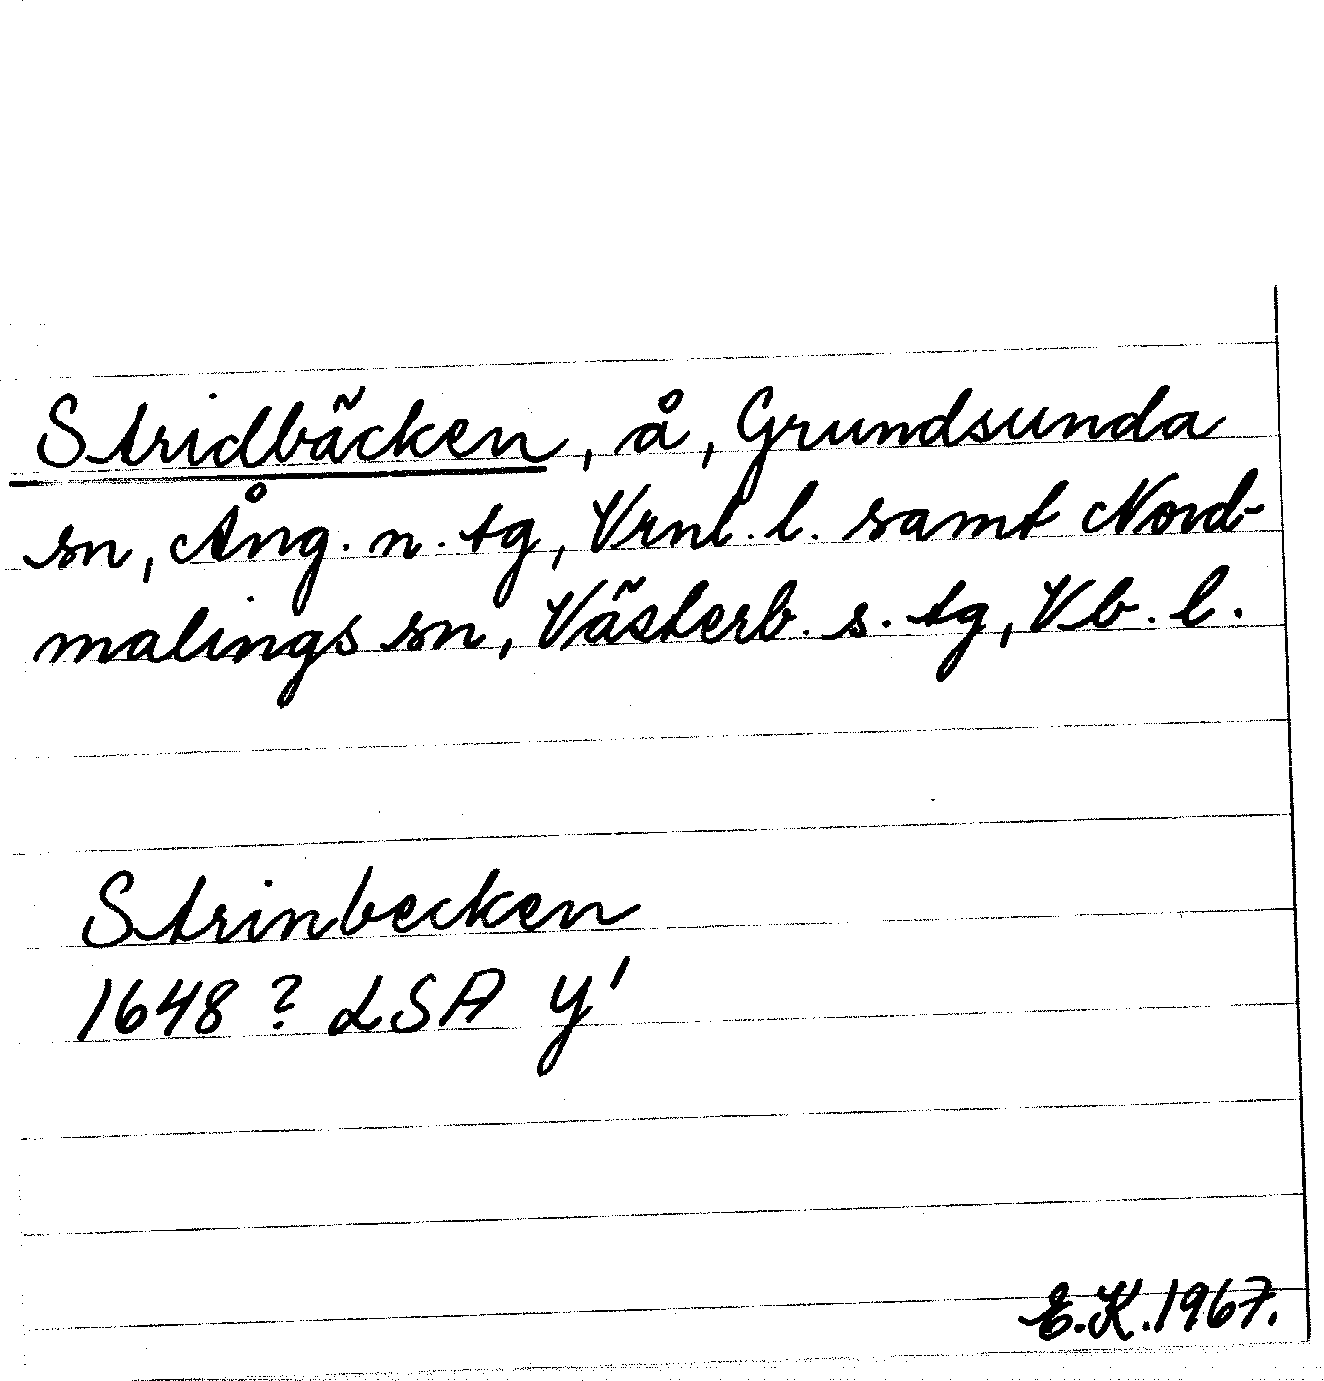 Stridbäcken, å, Grundsunda
sn, Ång. n. tg, Vrnl. l. samt Nord-
malings sn, Västerb. s. tg, Vb. l.
Strinbecken
1648? LSA Y¹
E.K. 1967.